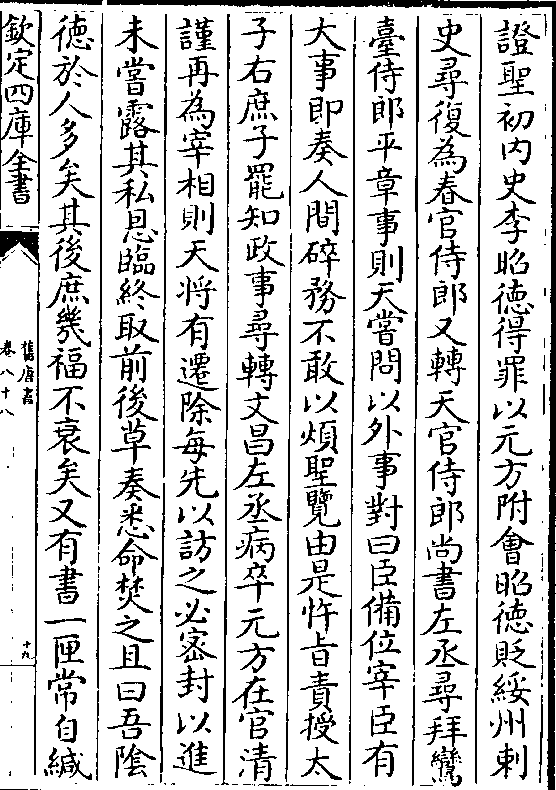 證聖初内史李昭德得罪以元方附會昭德貶綏州刺
史尋復為春官侍郎又轉天官侍郎尚書左丞尋拜鸞
臺侍郎平章事則天嘗問以外事對曰臣備位宰臣有
大事即奏人間碎務不敢以煩聖覽由是忤旨責授太
子右庶子罷知政事尋轉文昌左丞病卒元方在官清
謹再為宰相則天将有遷除每先以訪之必密封以進
未嘗露其私恩臨終取前後草奏悉命焚之且曰吾陰
徳於人多矣其後庶幾福不衰矣又有書一匣常自緘
欽定四庫全書
舊唐書
卷八十八
十九